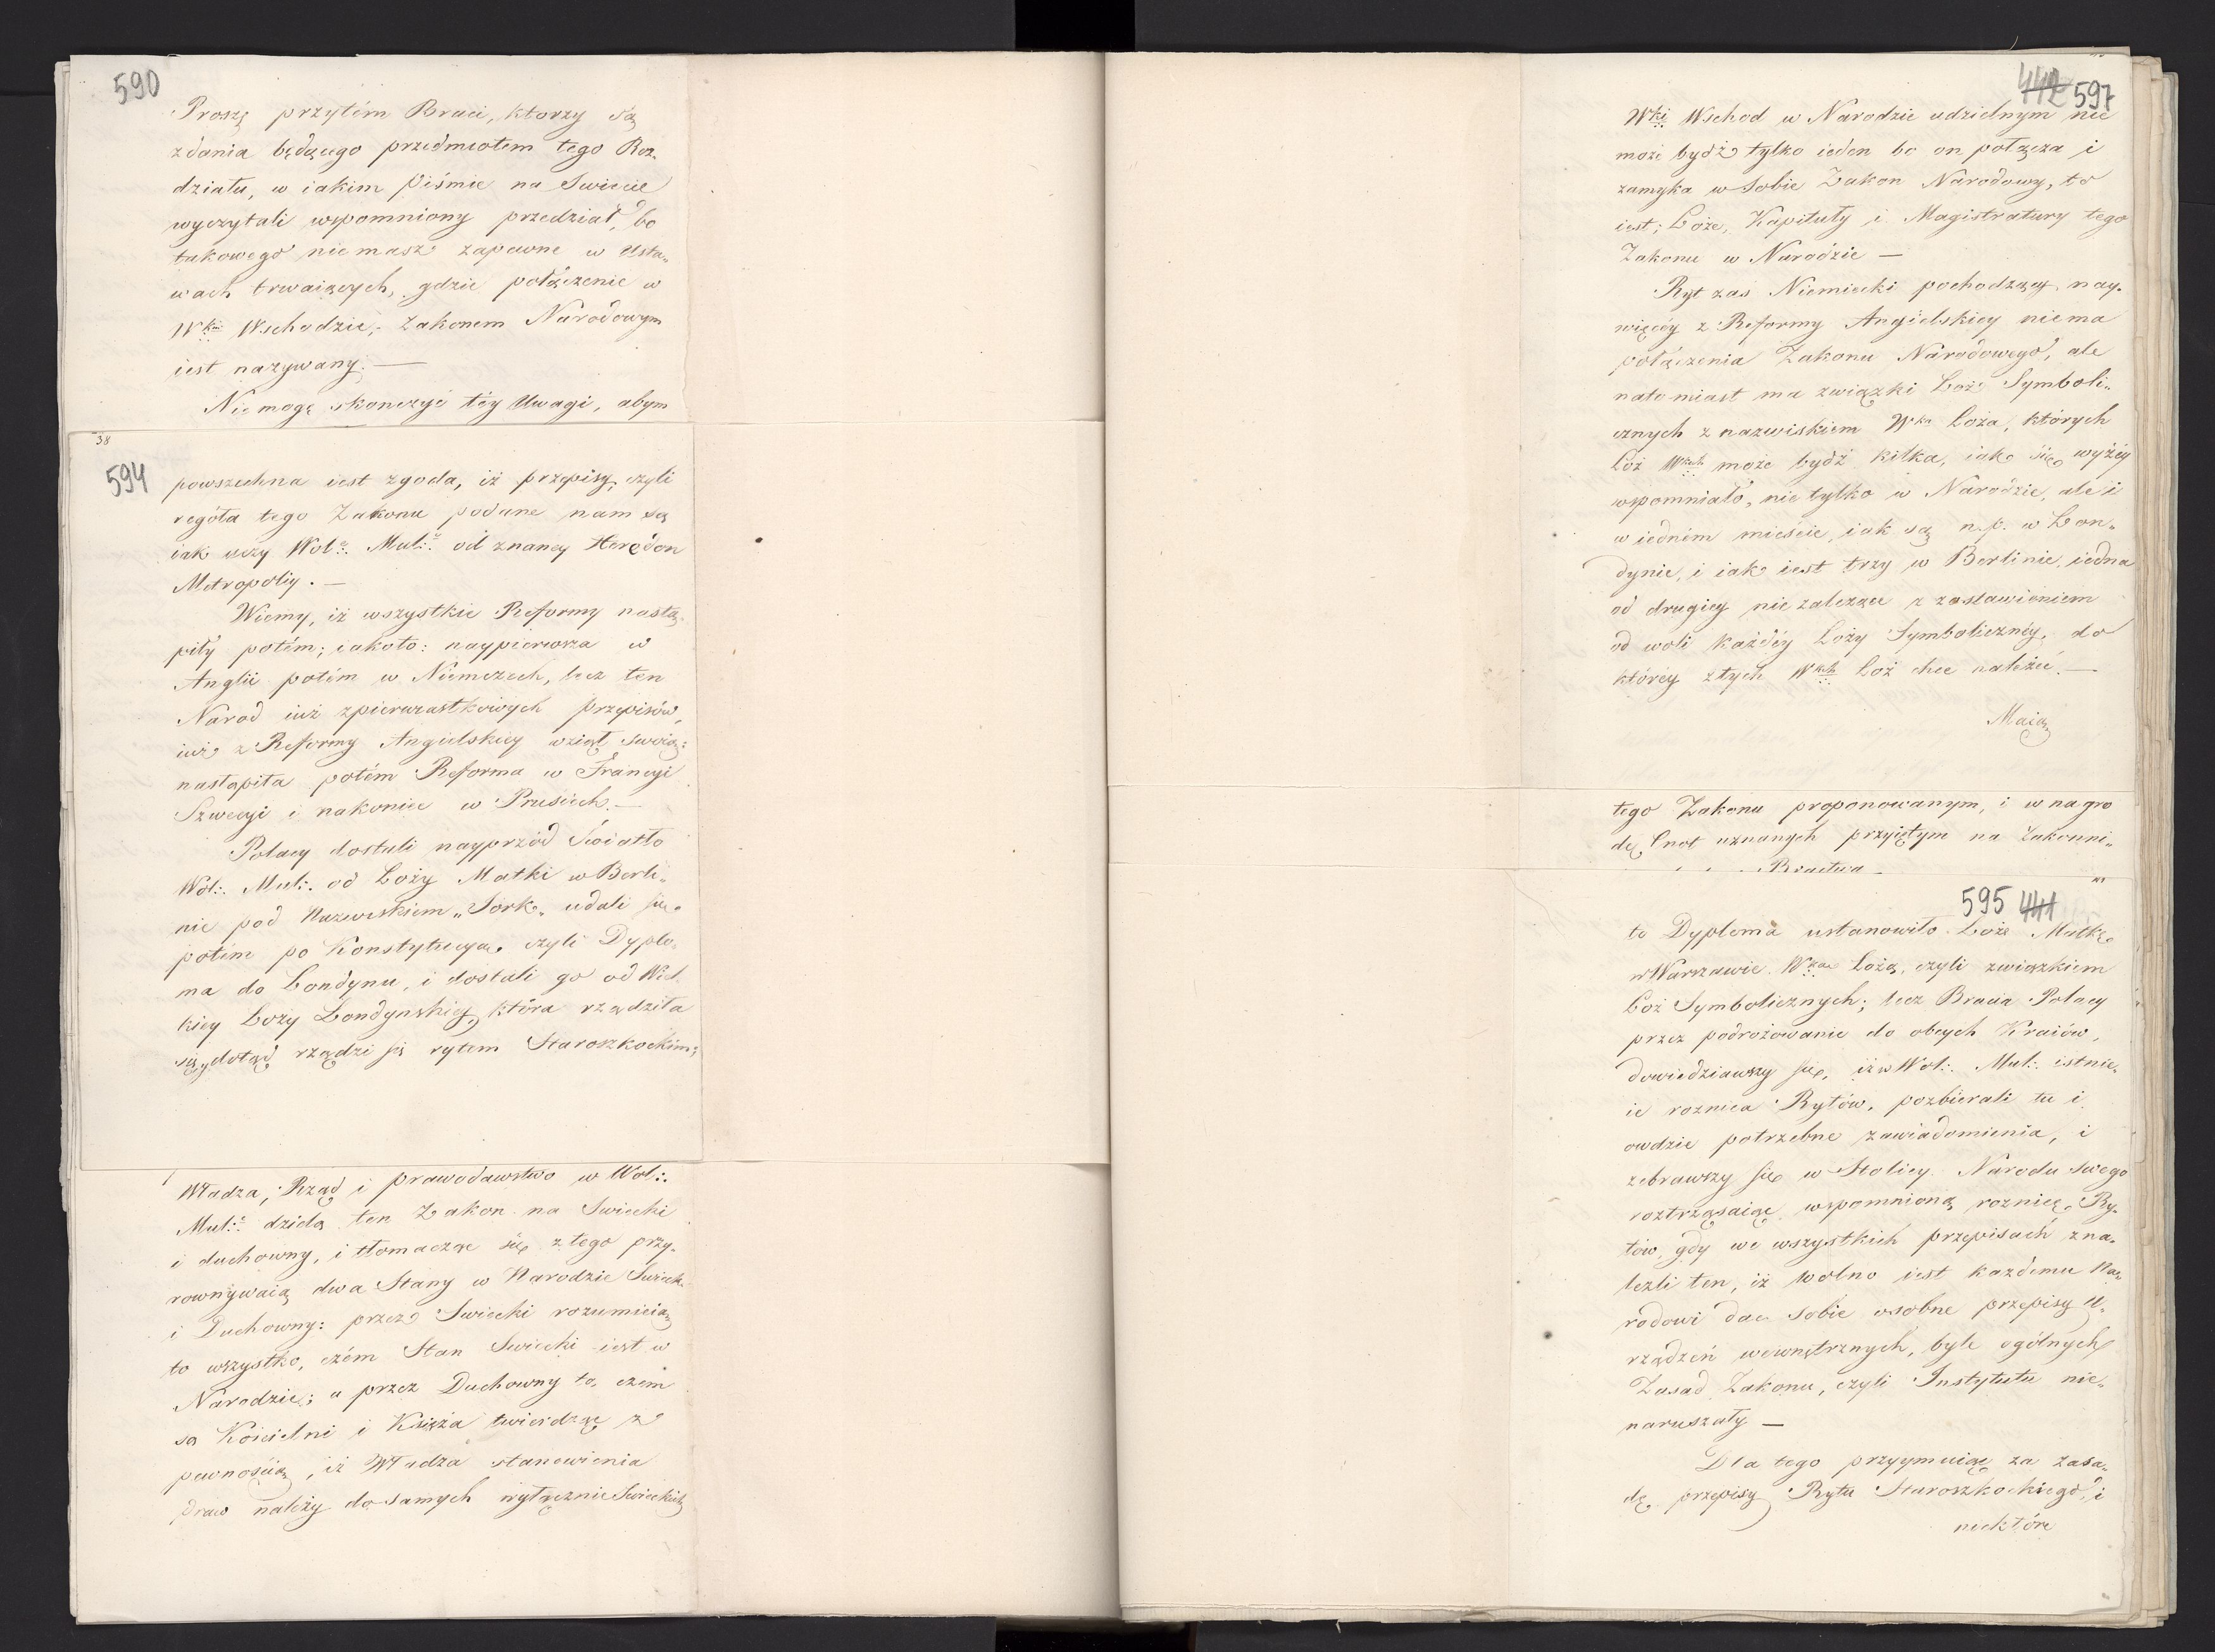 590
Proszę przytém Braci, ktorzy są
zdania będącego przedmiotem tego Roz„
działu, w iakim piśmie na Swiecie
wyczytali wspomniony przedział, bo
takowego nie masz zapewne w Usta„
wach trwaiących, gdzie połączenie w
Wkim Wschodzie, Zakonem Narodowym
iest nazywany. —
Nie mogę skonczyć téy Uwagi, abym
38
594
powszechna iest zgoda, iż przepisy, czyli
reguła tego Zakonu podane nam są
iak uczy Wol∴ Mul∴ od znaney Heredon
Metropoliy. —
Wiemy, iż wszystkie Reformy nastą„
piły potém; iakoto: naypierwsza w
Anglii potém w Niemczech, lecz ten
Narod iuż z pierwiastkowych przepisów,
iuż z Reformy Angielskiey wziął swoią;
nastąpiła potém Reforma w Francyi
Szwecyi i nakoniec w Prusiech. —
Polacy dostali nayprzód Światło
Wol∴ Mul∴ od Loży Matki w Berli„
nie pod Nazwiskiem „Jork„ udali się
potém po Konstytucyą, czyli Dyplo„
ma do Londynu, i dostali go od Wiel
kiey Loży Londynskiey, która rządziła
się, y dotąd rządzi się rytem Staroszkockim;
Władza, Rząd i prawodawstwo w Wol∴
Mul∴ dzielą ten Zakon na Swiecki
i duchowny, i tłomacząc się z tego przy„
rownywaią dwa Stany w Narodzie Swieck
i Duchowny: przez Swiecki rozumieią
to wszystko, czém Stan Swiecki iest w
Narodzie; a przez Duchowny to, czem
są Kościelni i Księża twierdząc z
pewnością, iż Władza stanowienia
praw należy do samych wyłącznie Swieckich
442 597
Wki Wschod w Narodzie udzielnym nie
może bydź tylko ieden bo on połącza i
zamyka w Sobie Zakon Narodowy, to
iest; Loże, Kapituły i Magistratury tego
Zakonu w Narodzie —
Ryt zas Niemiecki pochodzący nay„
więcéy z Reformy Angielskiey niema
połączenia Zakonu Narodowego, ale
natomiast ma związki Loż Symboli„
cznych z nazwiskiem Wka Loża, których
Loż Wkich może bydź kilka, iak się wyżéy
wspomniało, nie tylko w Narodzie, ale i
w iednim mieście, iak są n.p. w Lon„
dynie, i iak iest trzy w Berlinie, iedna
od drugiey nie zależąca z zostawieniem
od woli każdéy Loży Symbolicznéy, do
któréy z tych Wkich Loż chce należeć. —
Maią
tego Zakonu proponowanym, i w nagro
dę Cnot uznanych przyiętym na Zakonni„
Bractwa
595 441
to Dyploma ustanowiło Lożę Matkę
w Warszawie Wką Lożą, czyli związkiem
Loż Symbolicznych; lecz Bracia Polacy
przez podrożowanie do obcych Kraiów,
dowiedziawszy się, iż w Wol∴ Mul∴ istnie„
ie roznica Rytów, pozbierali tu i
owdzie potrzebne zawiadomienia, i
zebrawszy się w Stolicy Narodu swego
roztrząsaiąc wspomnioną roznicę Ry„
tów, gdy we wszystkich przepisach zna„
lezli ten, iż wolno iest każdemu Na„
rodowi dać sobie osobne przepisy U„
rządzeń wewnętrznych, byle ogólnych
Zasad Zakonu, czyli Instytutu nie„
naruszały —
Dla tego przyymuiąc za zasa„
dę przepisy Rytu Staroszkockiego, i
niektóre